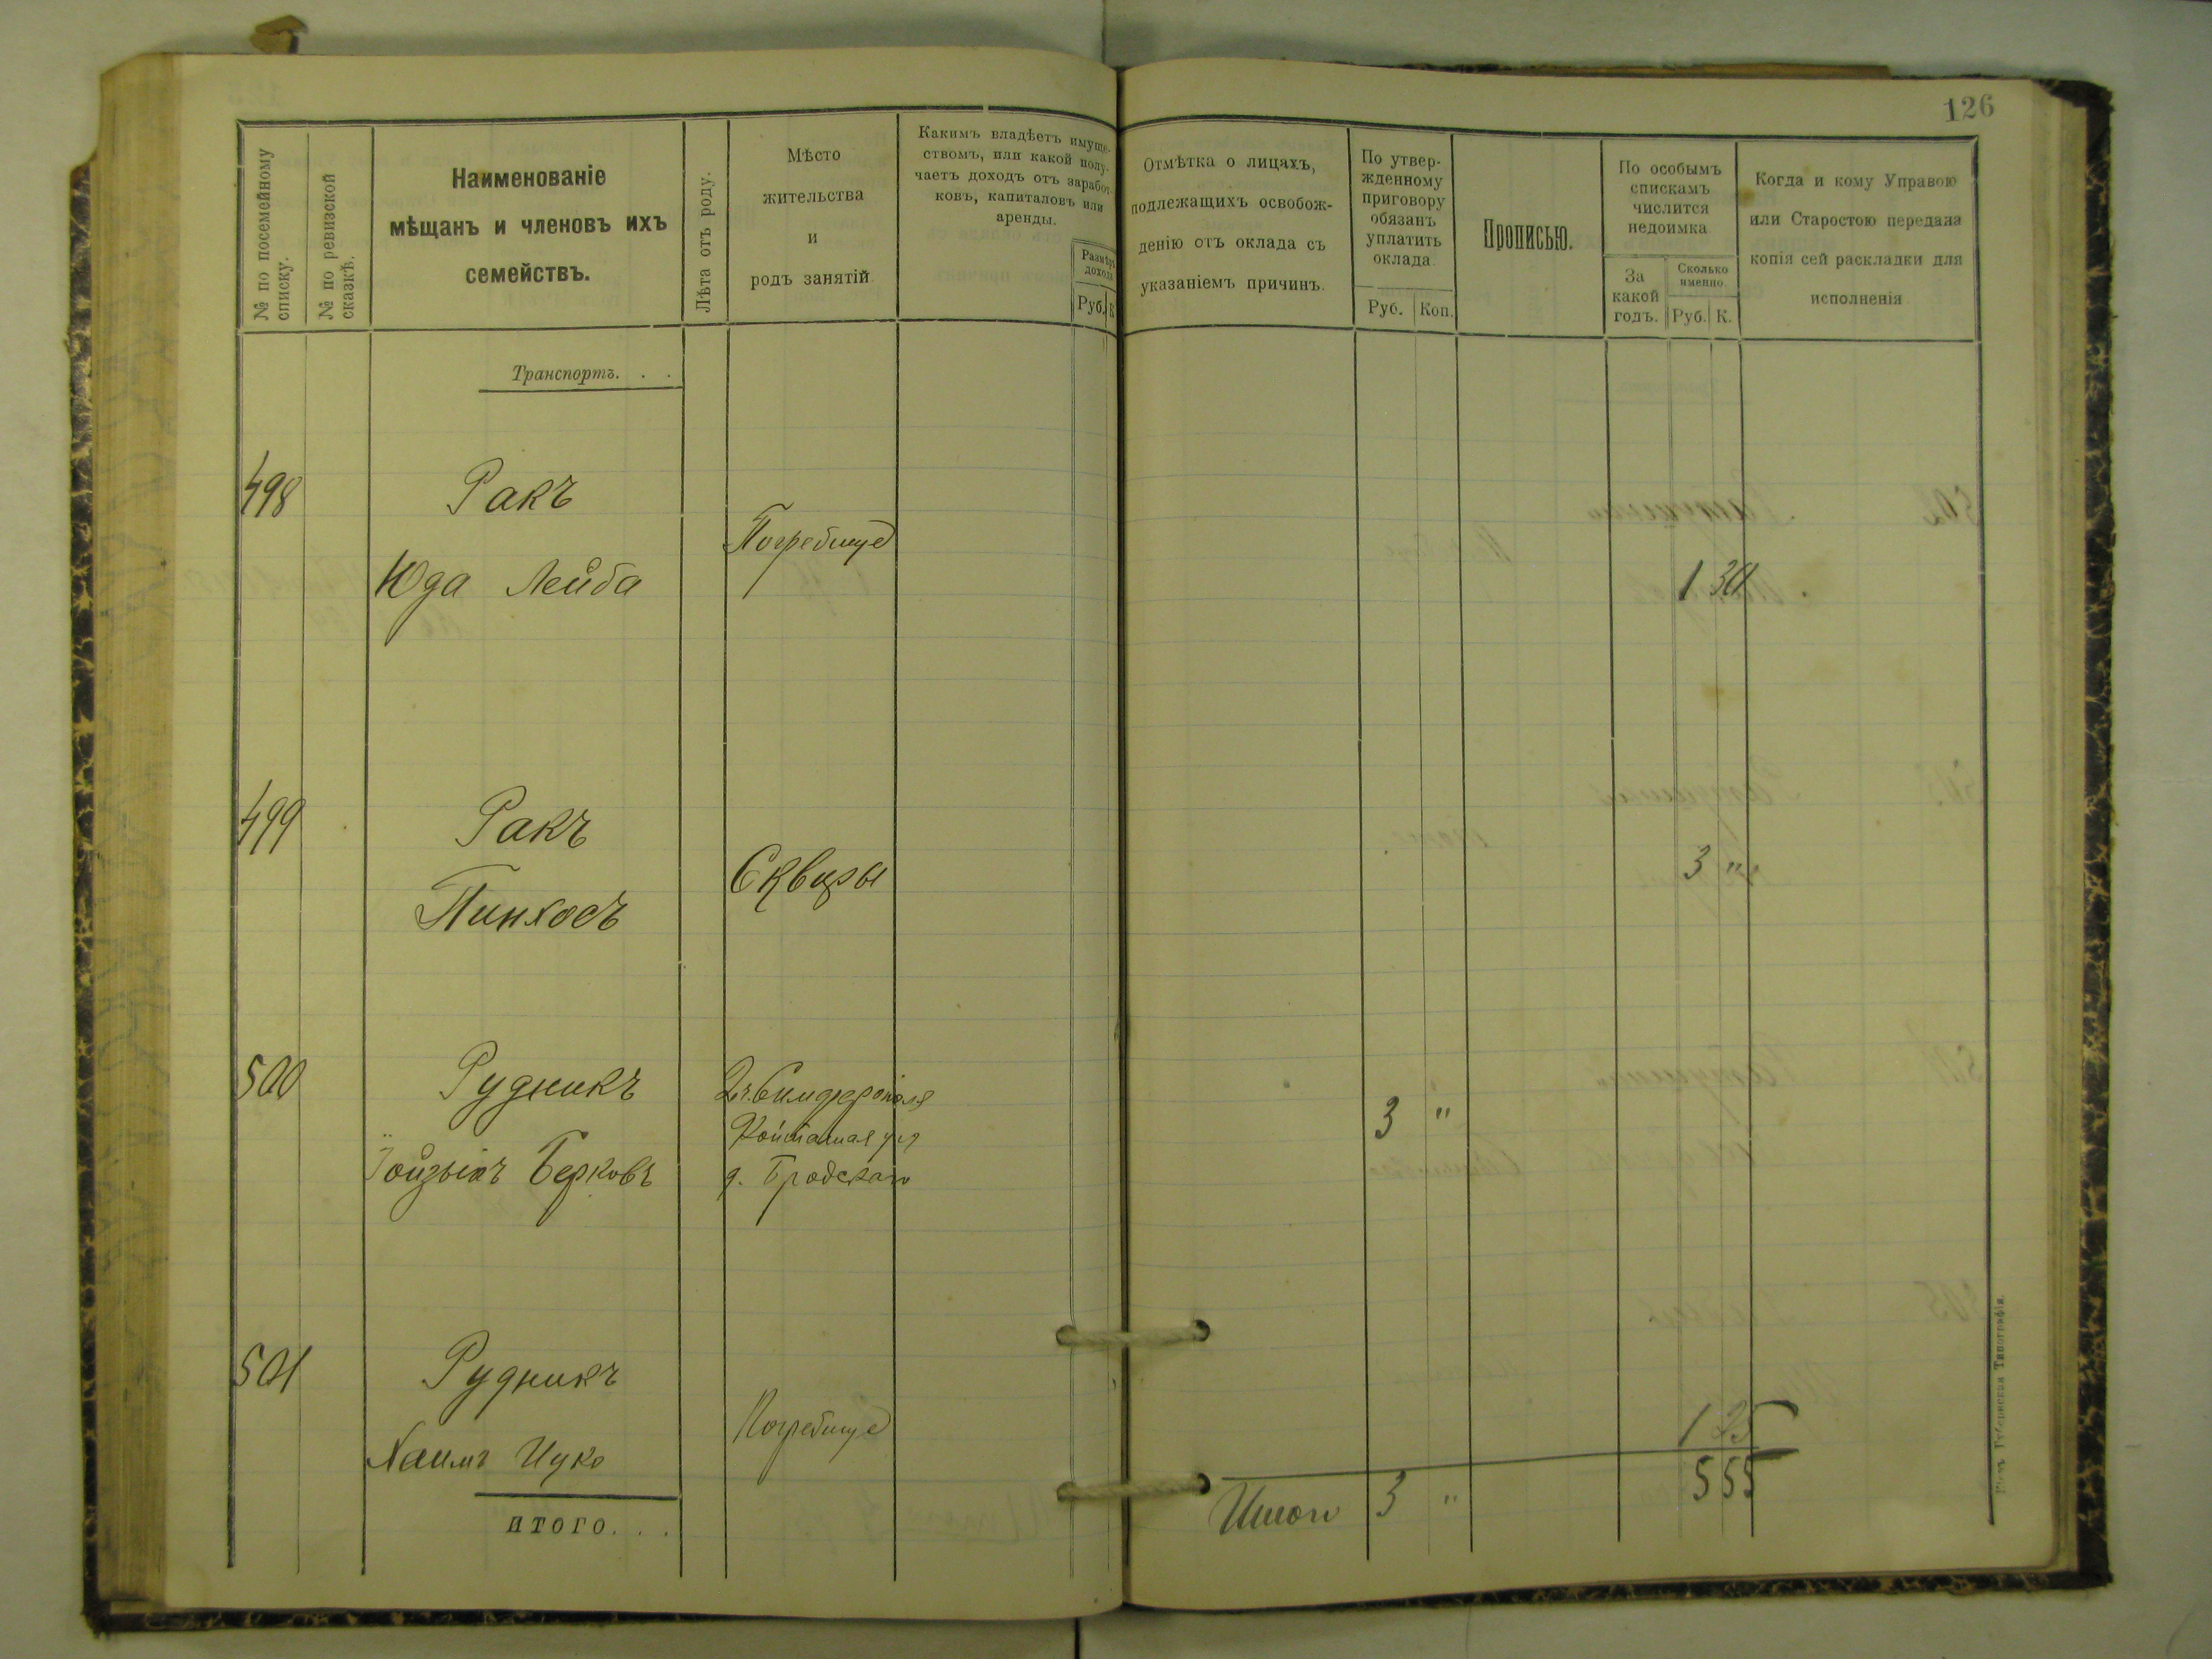 126
№ по посемейному
списку.
№ по ревизской
сказкѣ.
Наименованіе
мѣщанъ и членовъ ихъ
семействъ.
Лѣта отъ роду.
Мѣсто
жительства
и
родъ занятій
Какимъ владѣетъ имуще-
ствомъ, или какой полу-
чаетъ доходъ отъ заработ-
ковъ, капиталовъ или
аренды.
Размѣръ
дохода
Руб.
К
Отмѣтка о лицахъ,
подлежащихъ освобож-
денію отъ оклада съ
указаніемъ причинъ.
По утвер-
жденному
приговору
обязанъ
уплатить
оклада
Руб.
Коп.
Прописью.
По особымъ
спискамъ
числится
недоимка
За
какой
годъ.
Сколько
именно.
Руб.
К.
Когда и кому Управою
или Старостою передана
копія сей раскладки для
исполненія
Транспортъ. . .
498
Ракъ
Погребище
Юда Лейба
1 30
499
Ракъ
Сквиры
3 "
Пинхосъ
500
Рудникъ
Симферополя
3 "
Берковъ
д. Бродскаго
501
Рудникъ
Погребище
1 25
Хаимъ Ицко
итого. . .
Итого 3 " 5 55
Типографія.